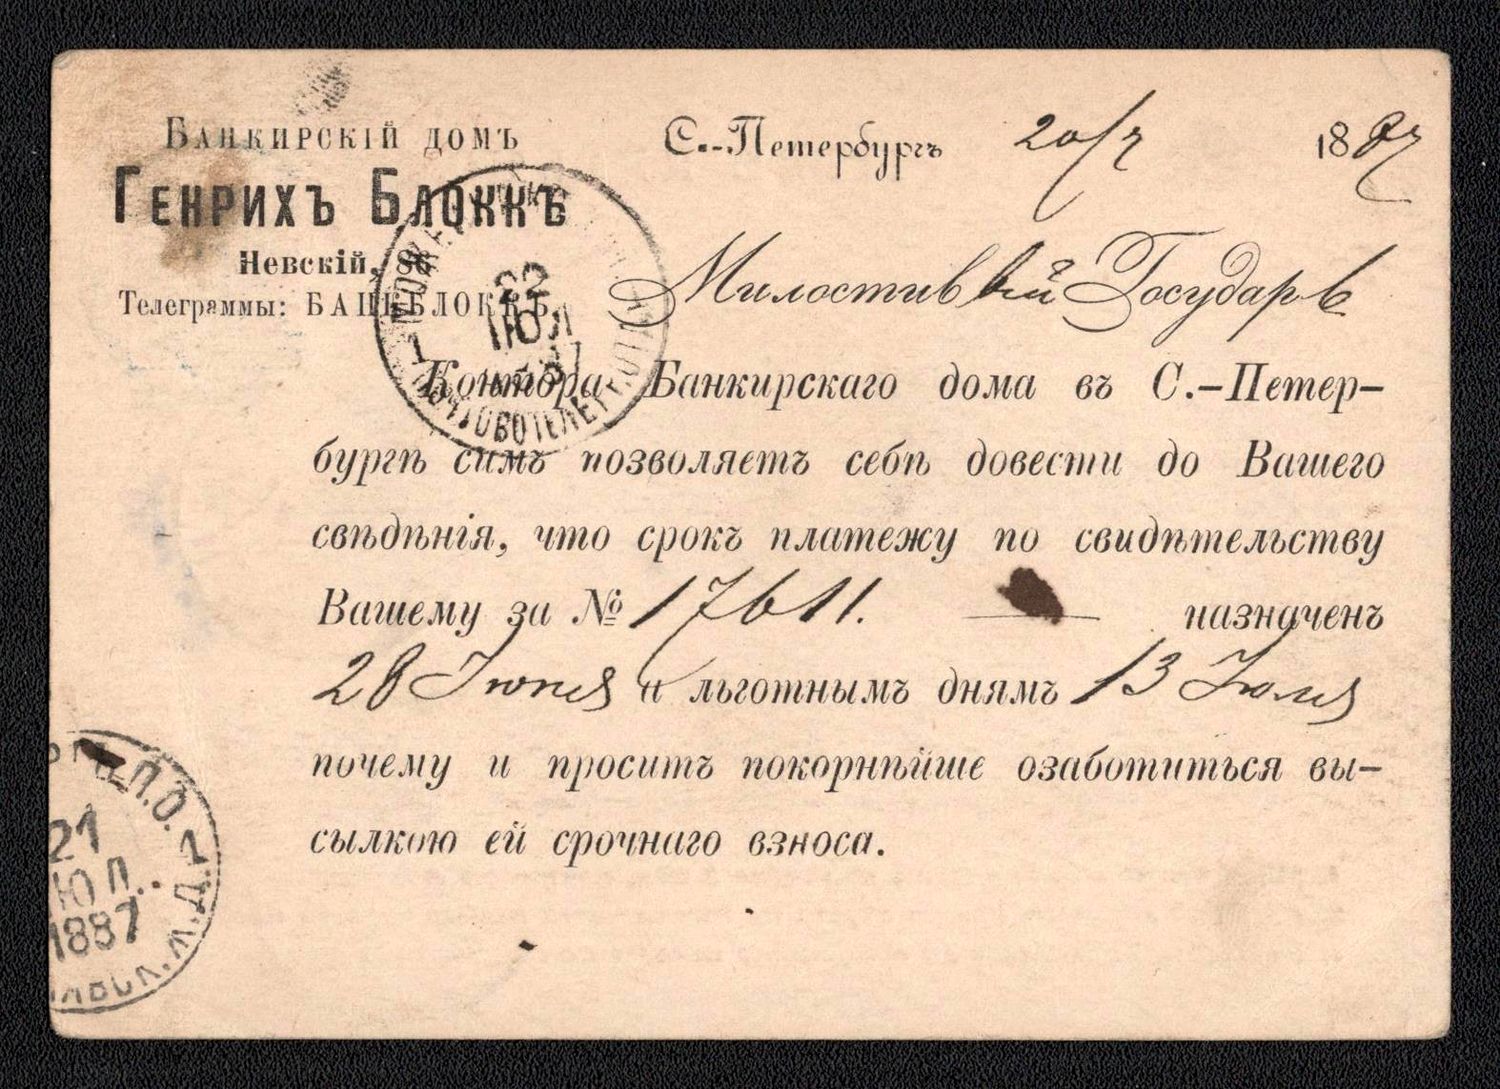 Банкирскій домъ
Генрихъ Блоккъ
Невскій, 86
Телеграммы: БАНКБЛОККЪ.
С.-Петербургъ 20/7 1887
Милостивый Государь
Контора Банкирскаго дома въ С.-Петер-
бургѣ симъ позволяетъ себѣ довести до Вашего
свѣдѣнія, что срокъ платежу по свидѣтельству
Вашему за № 17611. назначенъ
28 Іюня и льготнымъ днямъ 13 Іюля
почему и проситъ покорнѣйше озаботиться вы-
сылкою ей срочнаго взноса.
22
ІЮЛ
1
ПОЧТОВОТЕЛЕГР.
П.О.1
21
ІЮЛ.
1887